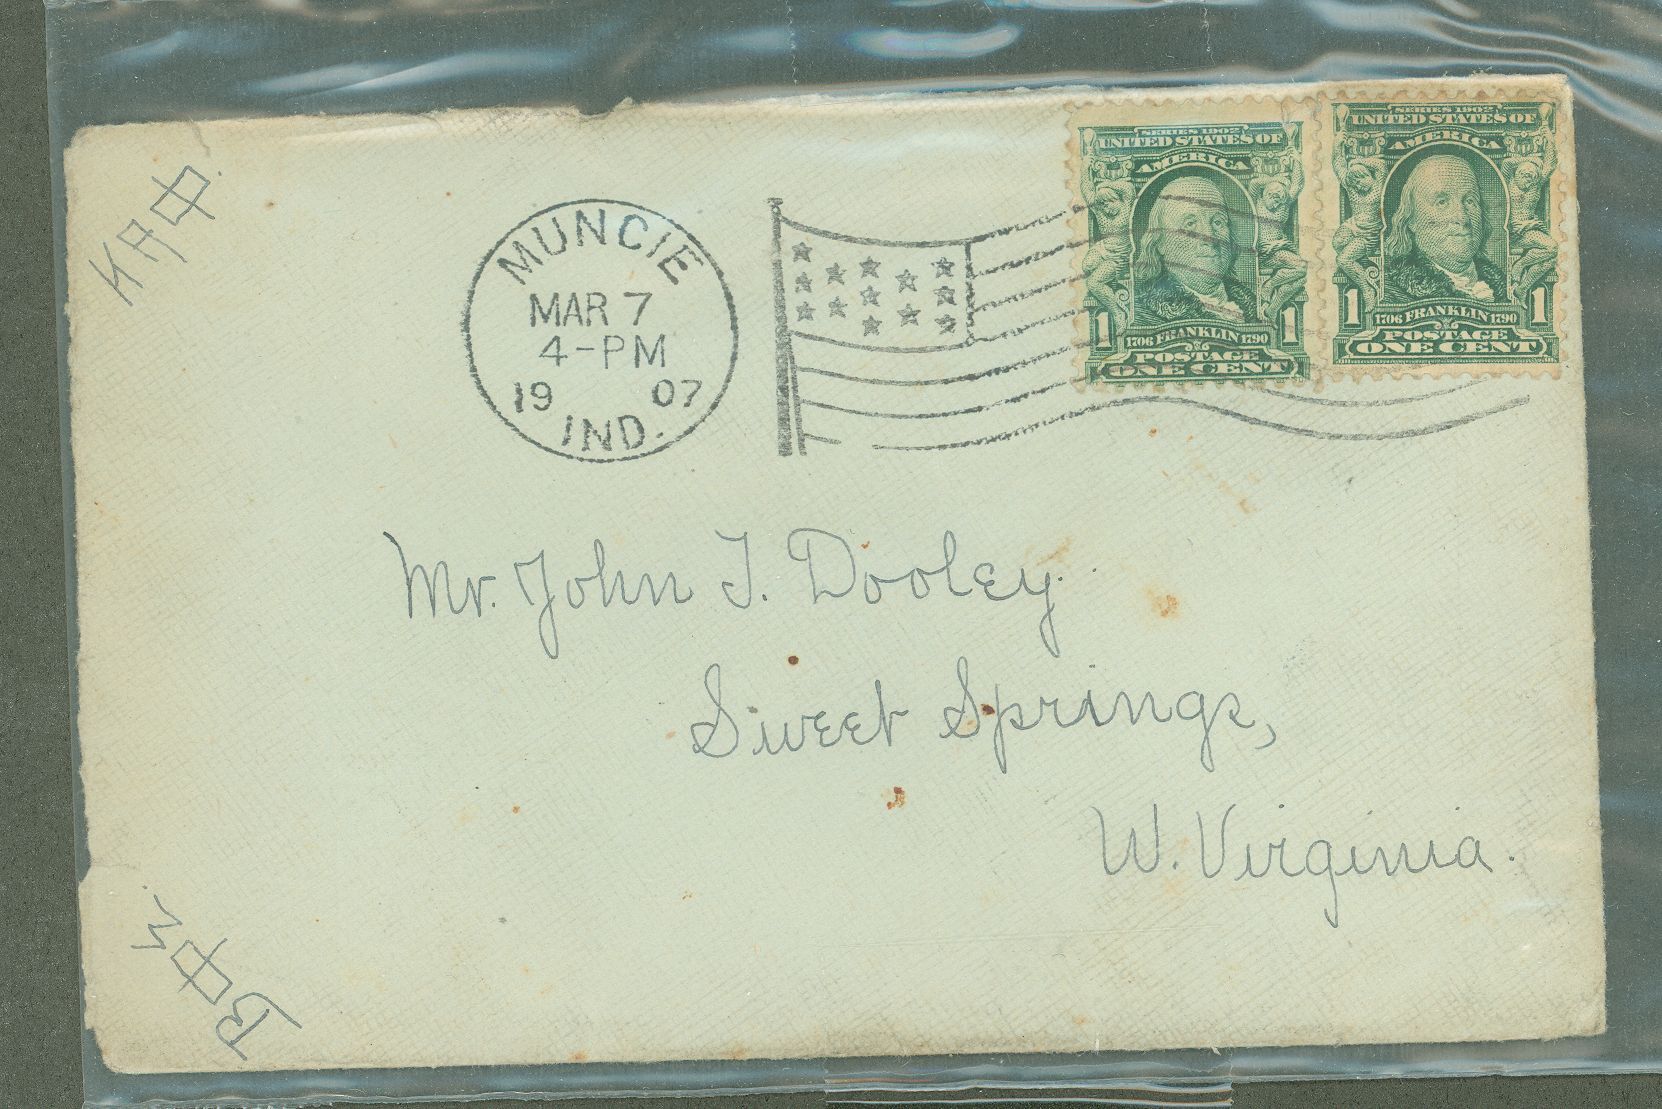 KAΦ.
MUNCIE
MAR 7
4-PM
19 07
IND.
SERIES 1902
UNITED STATES OF
AMERICA
1 1
1706 FRANKLIN 1790
POSTAGE
ONE CENT
SERIES 1902
UNITED STATES OF
AMERICA
1 1
1706 FRANKLIN 1790
POSTAGE
ONE CENT
Mr. John T. Dooley.
Sweet Springs,
W. Virginia.